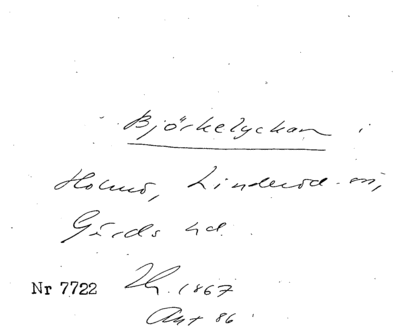 Björkelyckan i
Holmö, Linderöd sn,
Gärds hd
Nr 7722 Th. 1867
Ant 86